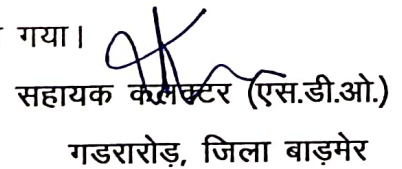 गया।
सहायक कलक्टर (एस.डी.ओ.)
गडरारोड़, जिला बाड़मेर